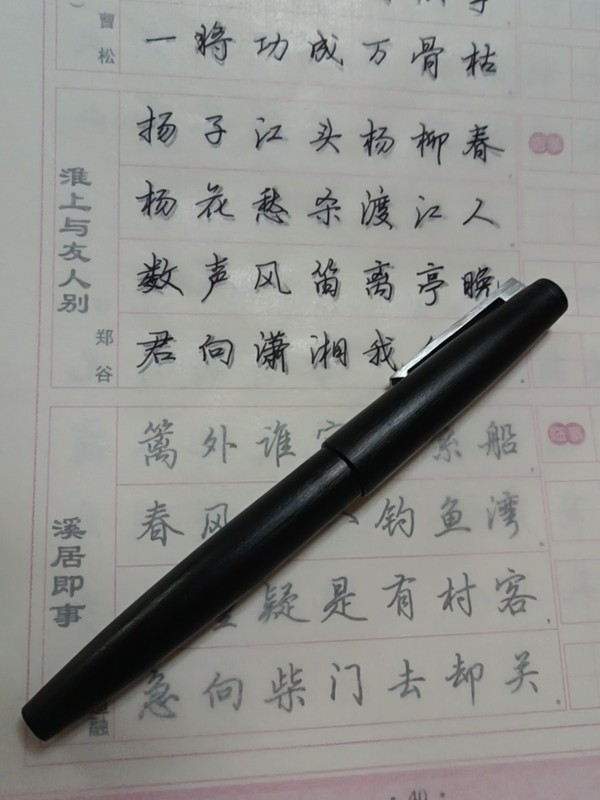 曹
松
一将功成万骨枯
淮上与友人别
郑
谷
扬子江头杨柳春
杨花愁杀渡江人
数声风笛离亭晚
君向潇湘我
溪居即事
融
篱外谁 系船
春风 钓鱼湾
疑是有村客
急向柴门去却关
40